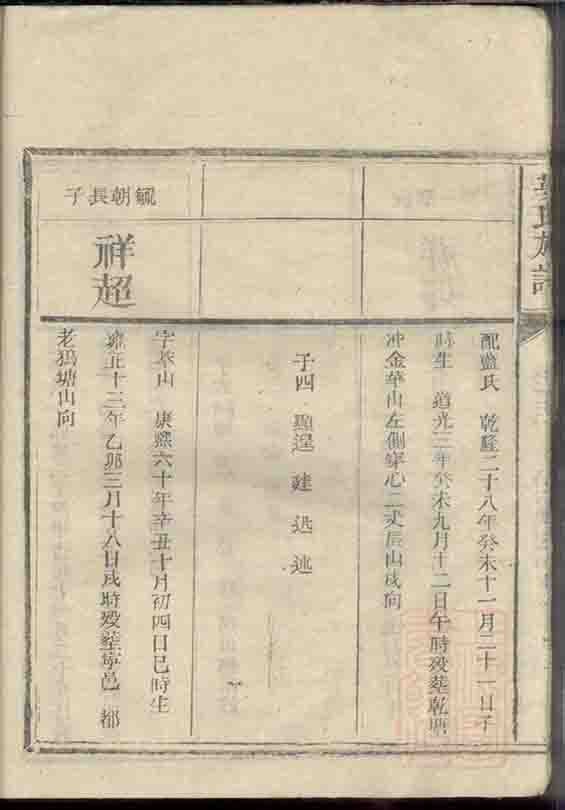 氏族譜
配藍氏 乾隆二十八年癸未十一月二十一日子
時生 道光三年癸未九月十二日午時歿葬乾塘
冲金華山左側穿心二丈辰山戌向
子四 建 迅 逃
毓朝長子
祥超
字 山 康熙六十年辛丑十月初四日巳時生
雍正十三年乙卯三月十八日戌時歿葬寧邑 都
老鴉塘山向